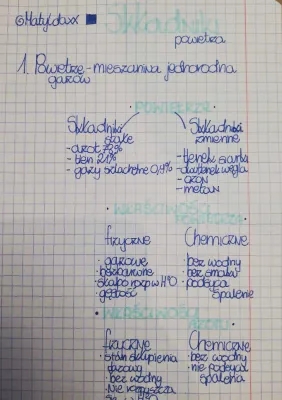 @Matyldaxx
Składniki
powietrza
1. Powietrze - mieszanina jednorodna
gazów
POWIETRZE
Składniki
stałe
- azot 78%
- tlen 21%
- gazy szlachetne 0,9%
Składniki
zmienne
- tlenek siarki
- dwutlenek węgla
- ozon
- metan
WŁAŚCIWOŚCI
POWIETRZA
fizyczne
• gazowe
• bezbarwne
• słabo rozp w H²O
• gęstość
Chemiczne
• bez wodny
• bez smaku
• podtrzymuje
spalanie
• WŁAŚCIWOŚCI
AZOTU
fizyczne
• stan skupienia
gazowy
• bez wodny
• Nie rozpuszcza
się w H²O
Chemiczne
• bez wodny
• nie podtrzymuje
spalania